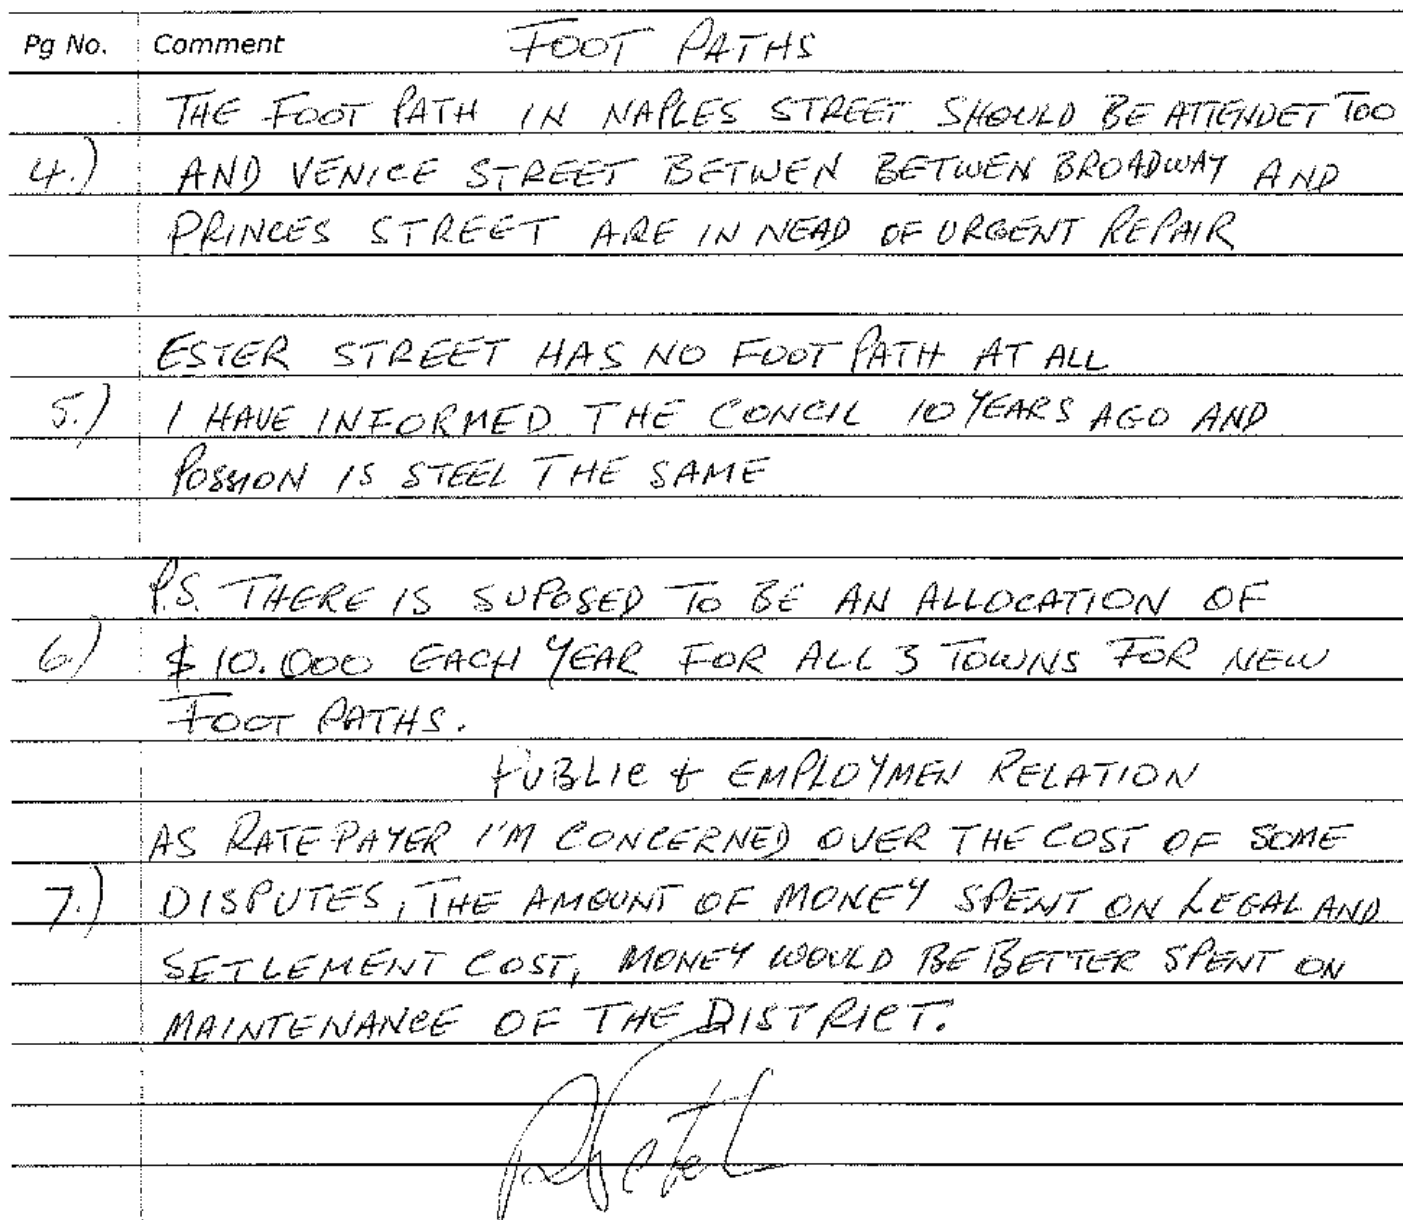 Pg No. Comment FOOT PATHS
THE FOOT PATH IN NAPLES STREET SHOULD BE ATTENDET TOO
4.) AND VENICE STREET BETWEN BETWEN BROADWAY AND
PRINCES STREET ARE IN NEAD OF URGENT REPAIR
ESTER STREET HAS NO FOOT PATH AT ALL
5.) I HAVE INFORMED THE CONCIL 10 YEARS AGO AND
POSSION IS STEEL THE SAME
P.S. THERE IS SUPOSED TO BE AN ALLOCATION OF
6.) $10.000 EACH YEAR FOR ALL 3 TOWNS FOR NEW
FOOT PATHS.
PUBLIC & EMPLOYMEN RELATION
AS RATE PAYER I'M CONCERNED OVER THE COST OF SOME
7.) DISPUTES, THE AMOUNT OF MONEY SPENT ON LEGAL AND
SETLEMENT COST, MONEY WOULD BE BETTER SPENT ON
MAINTENANCE OF THE DISTRICT.